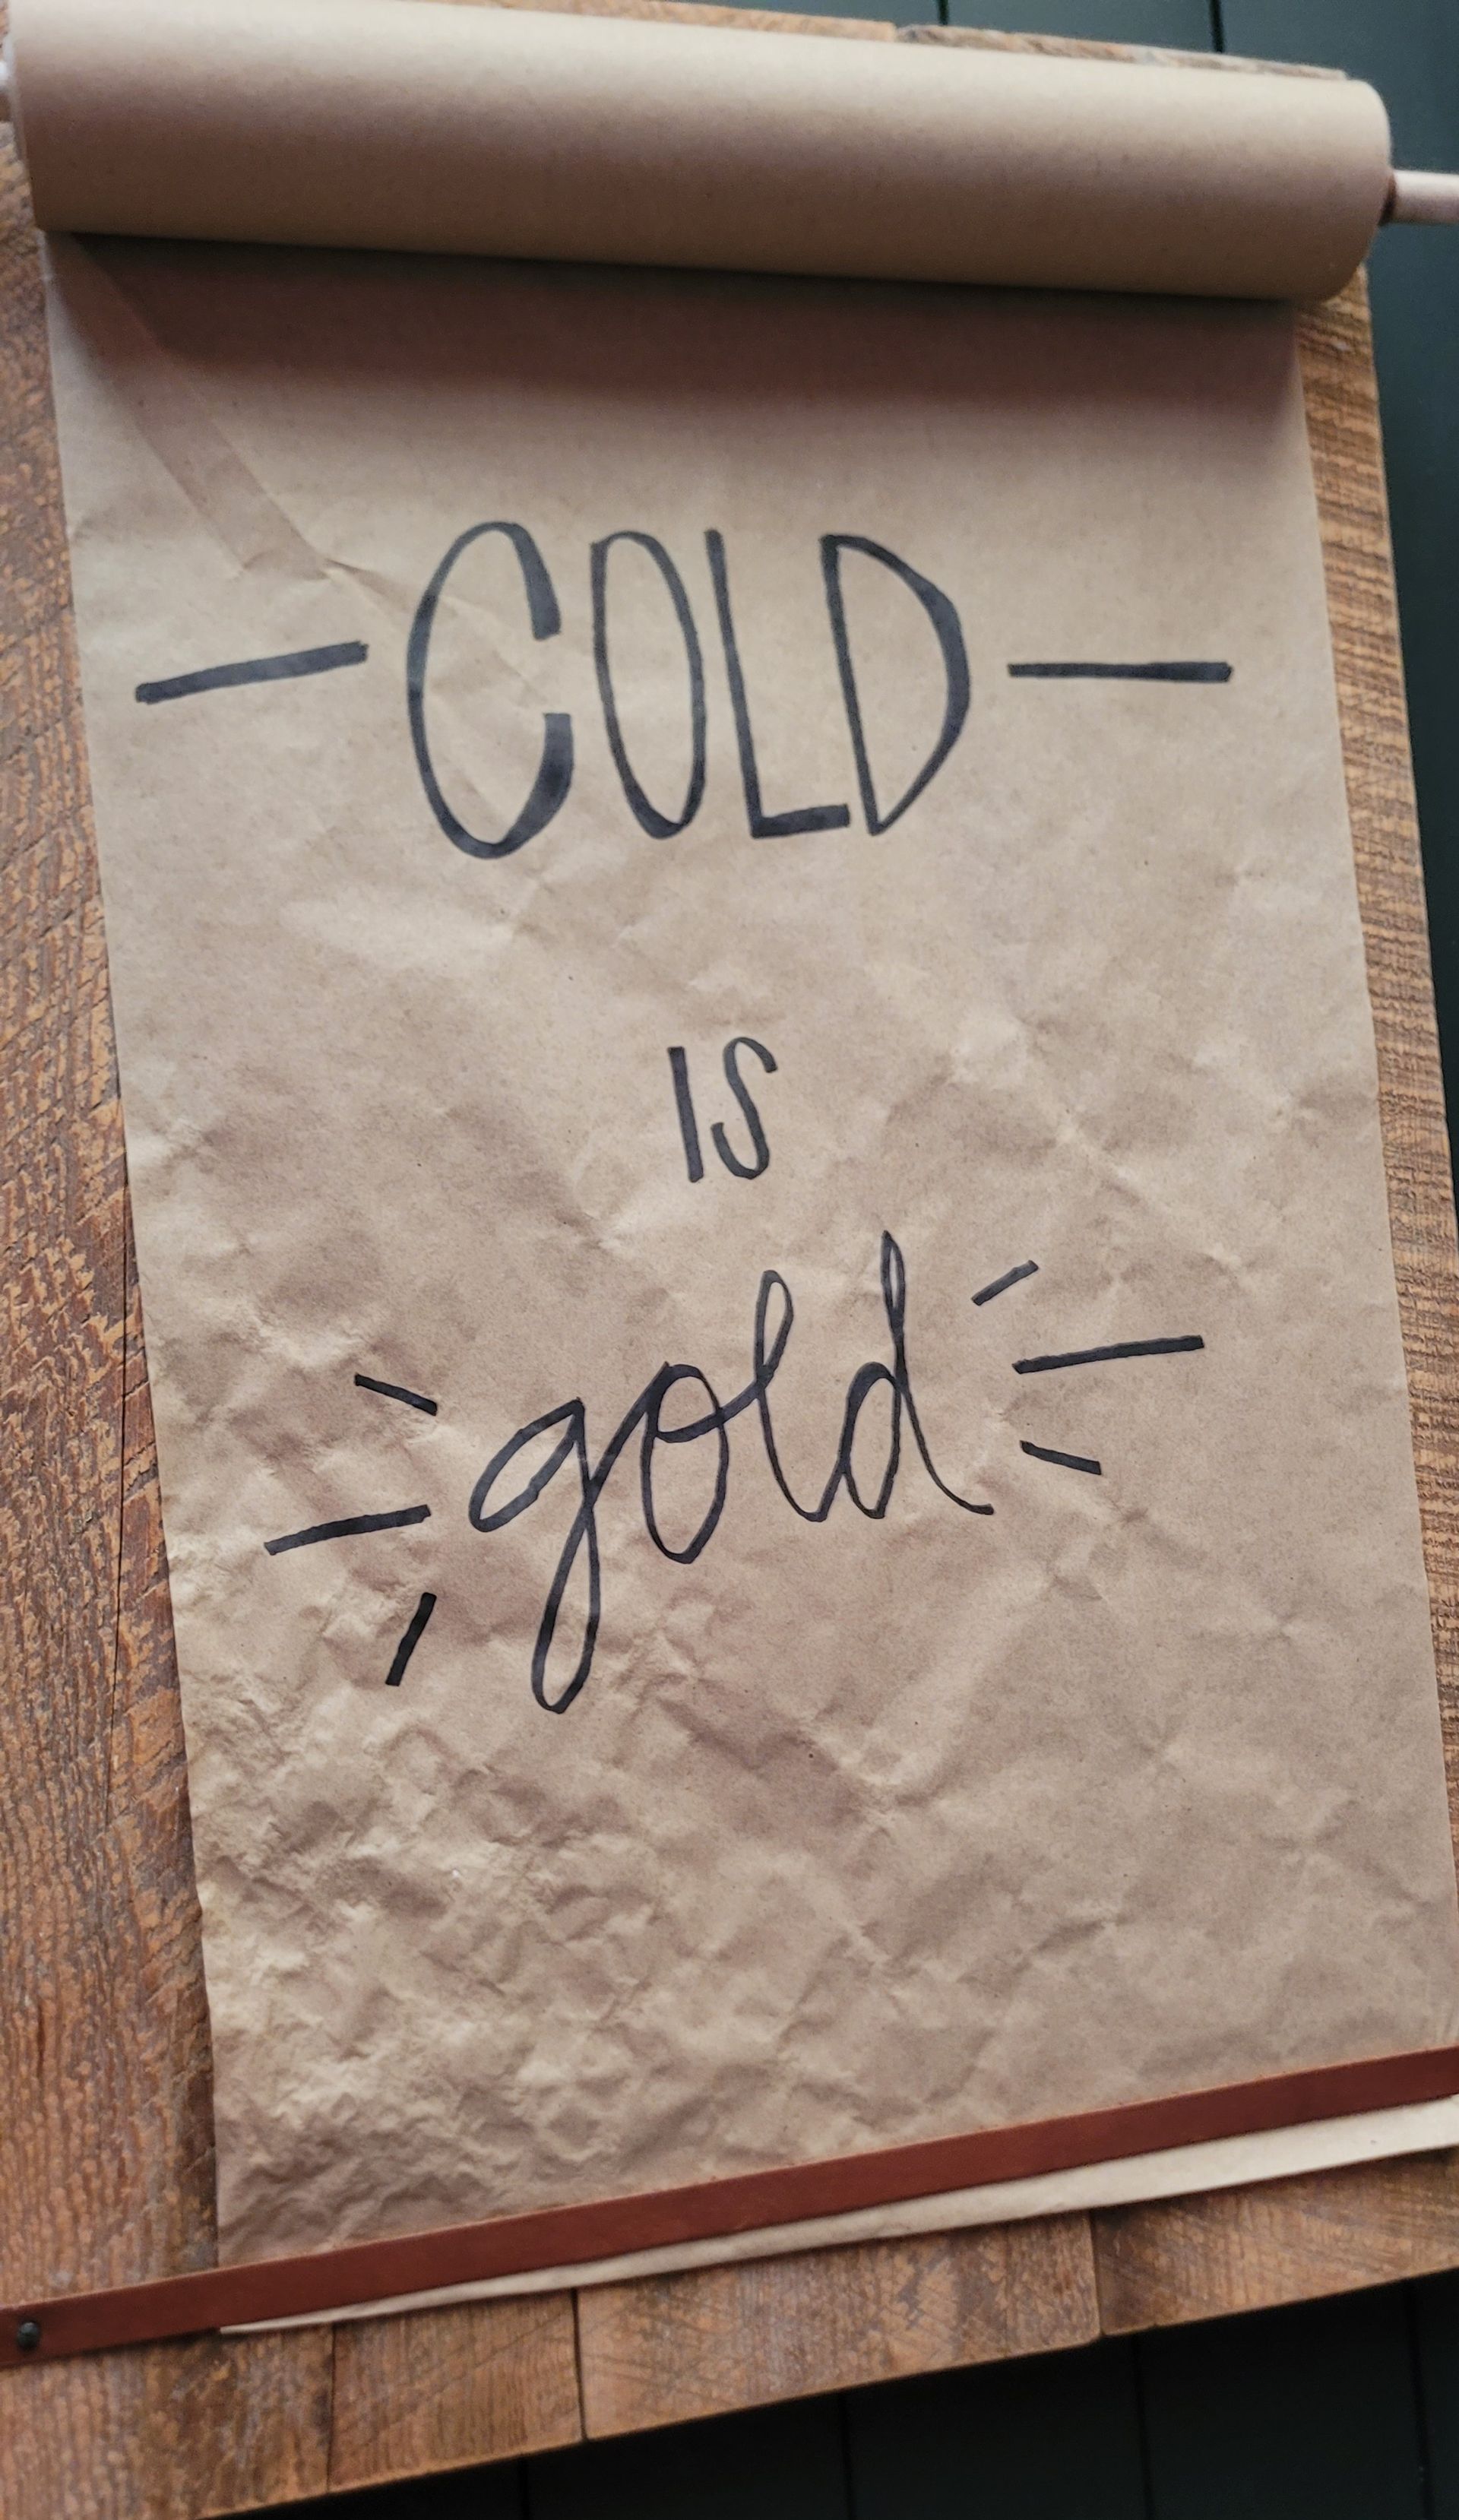 COLD
IS
gold